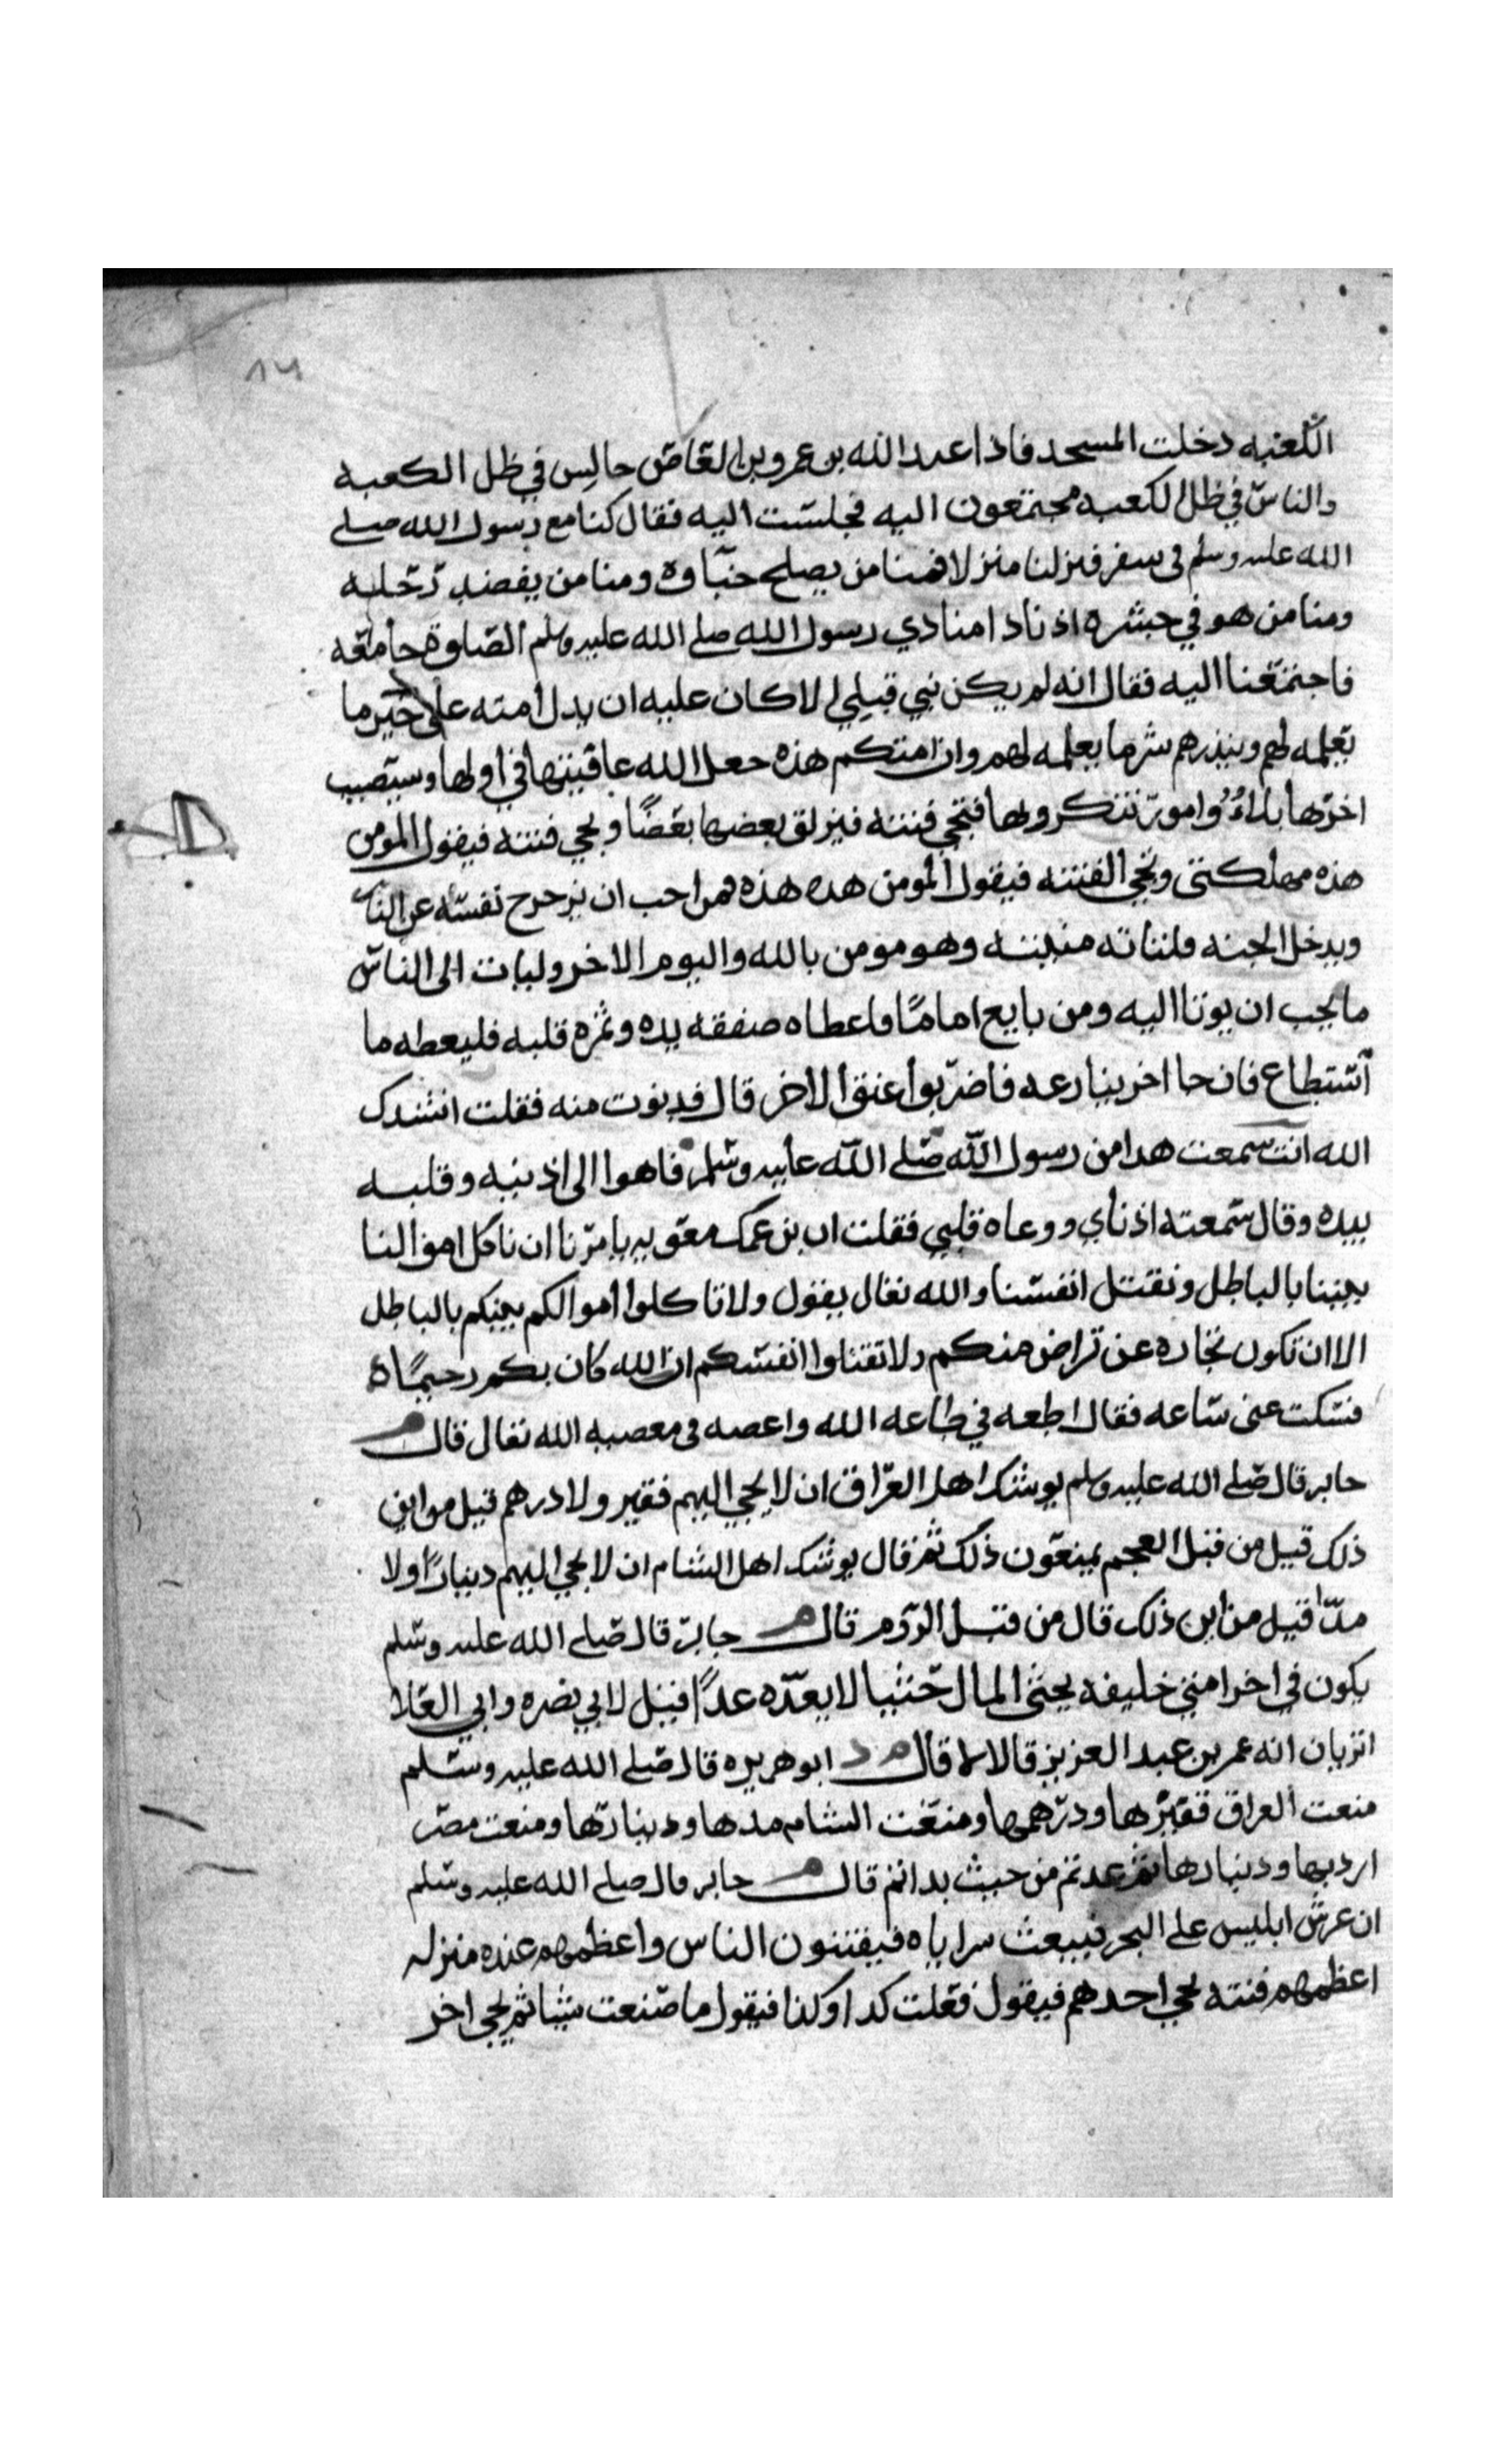 ١٨٢
الكعبه دخلت المسجد فاذا عبد الله بن عمرو بن العاص جالس في ظل الكعبه
والناس في ظل الكعبه مجتمعون اليه فجلست اليه فقال كنا مع رسول الله صلى
الله عليه وسلم في سفر فنزلنا منزلا فمنا من يصلح خباوه ومنا من
ومنا من هو في جشره اذ نادا منادي رسول الله صلى الله عليه وسلم الصلوة جامعه
فاجتمعنا اليه فقال انه لم يكن نبي قبلي الا كان عليه ان يدل امته على خير ما
يعلمه لهم وينذرهم شر ما يعلمه لهم وان امتكم هذه جعل الله عافيتها في اولها وسيصيب
اخرها بلاء وامور تنكرونها فتجي فتنه فيزلق بعضها بعضا وتجي فتنه فيقول المومن
هذه مهلكتي وتجي الفتنه فيقول المومن هذه هذه فمن احب ان يزحزح نفسه عن النار
ويدخل الجنه فلتاته منيته وهو مومن بالله واليوم الاخر وليات الى الناس
ما يحب ان يوتا اليه ومن بايع اماما فاعطاه صفقه يده وثمره قلبه فليعطه ما
استطاع فان جا اخر ينازعه فاضربوا عنق الاخر قال فدنوت منه فقلت انشدك
الله انت سمعت هدا من رسول الله صلى الله عليه وسلم فاهوا الى اذنيه وقلبه
بيده وقال سمعته اذناي ووعاه قلبي فقلت ان بن عمك معويه يامرنا ان ناكل اموالنا
بيننا بالباطل ونقتل انفسنا والله تعالى يقول ولا تاكلوا اموالكم بينكم بالباطل
الا ان تكون تجاره عن تراض منكم ولا تقتلوا انفسكم ان الله كان بكم رحيما ه
فسكت عني ساعه فقال اطعه في طاعه الله واعصه في معصيه الله تعالى قال م
جابر قال صلى الله عليه وسلم يوشك اهل العراق ان لا يجي اليهم فقير ولا درهم قيل من اين
ذلك قيل من قبل العجم يمنعون ذلك ثم قال يوشك اهل الشام ان لا يجي اليهم دينارا ولا
مدا قيل من اين ذلك قال من قبل الروم قال م جابر قال صلى الله عليه وسلم
يكون في اخر امتي خليفه يحثى المال حثيا لا يعده عدا قيل لابي نضره وابي العلا
اتريان انه عمر بن عبد العزيز قالا لا قال م د ابو هريره قال صلى الله عليه وسلم
منعت العراق قفيزها ودرهمها ومنعت الشام مدها ودينارها ومنعت مصر
اردبها ودينارها ثم عدتم من حيث بداتم قال م جابر قال صلى الله عليه وسلم
ان عرش ابليس على البحر فيبعث سراياه فيفتنون الناس واعظمهم عنده منزله
اعظمهم فتنه يجي احدهم فيقول فعلت كدا وكذا فيقول ما صنعت شيئا ثم يجي اخر